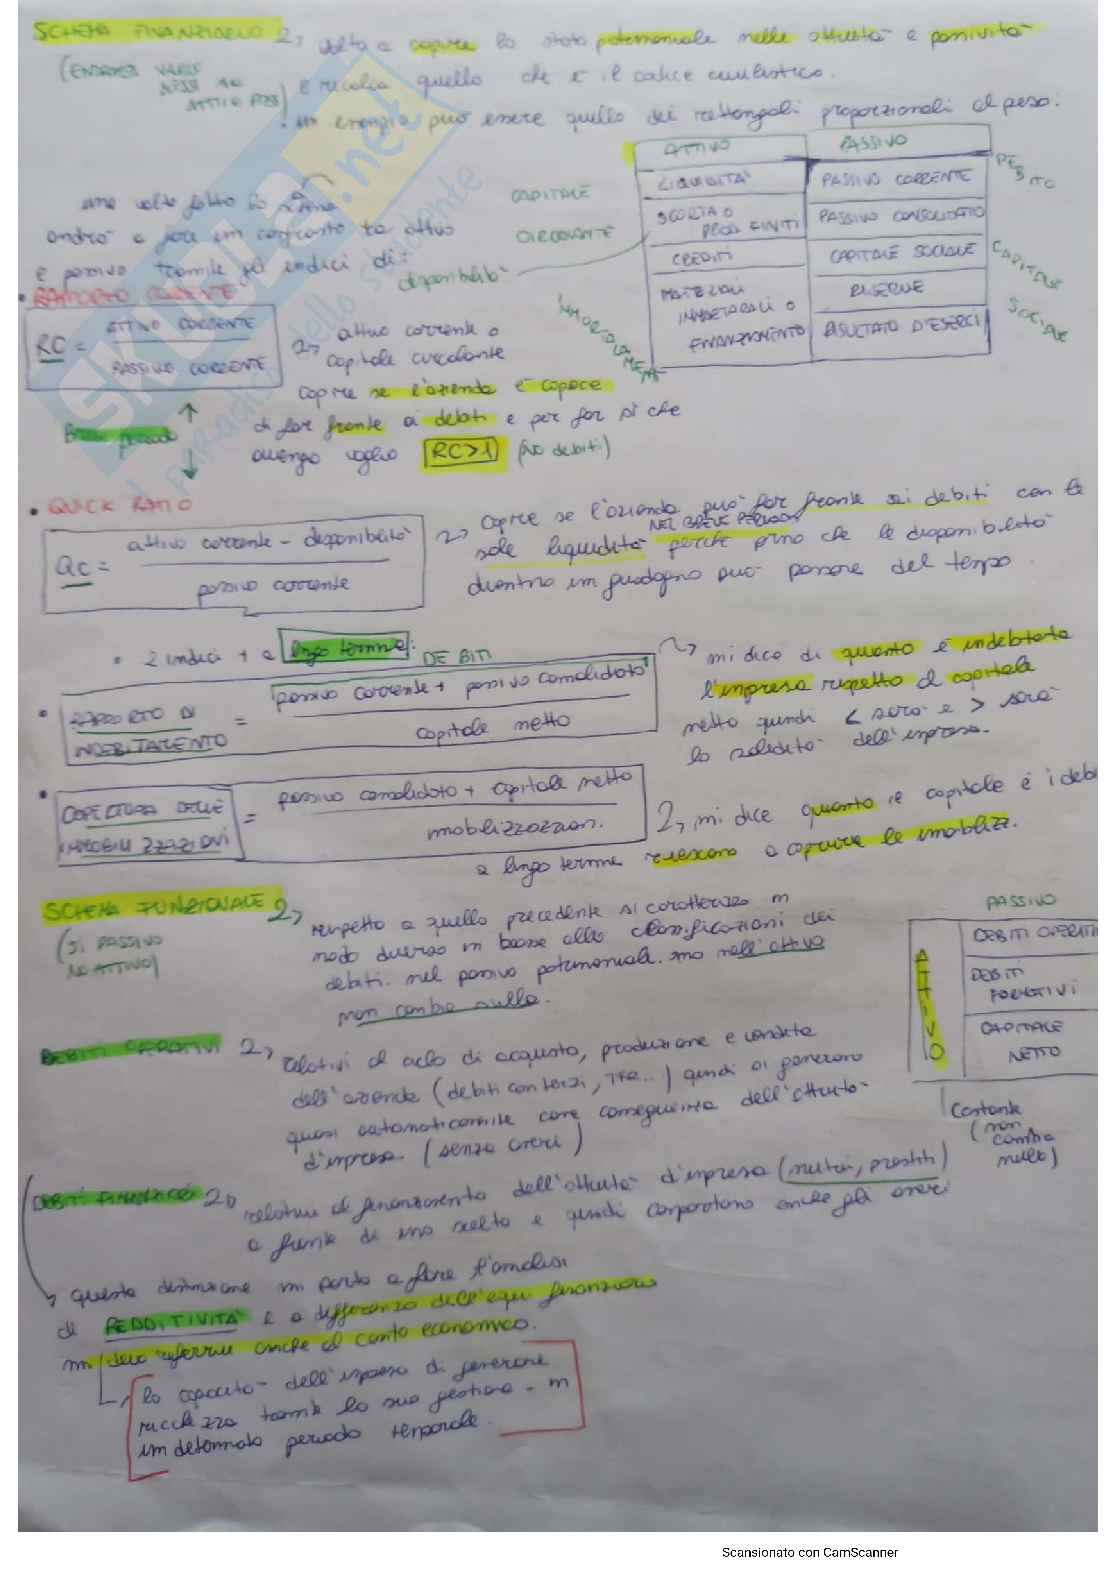 SCHEMA FINANZIARIO → volta a capire lo stato patrimoniale nelle attività e passività
(ENTRAMBI
e ricalca quello che è il codice civilistico.
ATTIVO E PASS)
• un esempio può essere quello dei rettangoli proporzionali al peso:
ATTIVO PASSIVO
LIQUIDITA' PASSIVO CORRENTE
SCORTA O PROD. FINITI PASSIVO CONSOLIDATO
CREDITI CAPITALE SOCIALE
MATERIALI IMMATERIALI O FINANZIAMENTO RISERVE
RISULTATO D'ESERCI
DEBITO
CAPITALE SOCIALE
CAPITALE CIRCOLANTE
IMMOBILIZZAM.
una volta fatto lo schema
andrò a fare un confronto tra attivo
e passivo tramite gli indici di:
disponibilità
• RAPPORTO CORRENTE
RC = ATTIVO CORRENTE
PASSIVO CORRENTE
→ attivo corrente o
capitale circolante
capire se l'azienda è capace
di far fronte ai debiti e per far sì che
avvenga voglio RC>1 (no debiti)
Breve periodo
• QUICK RATIO
QC = attivo corrente - disponibilità
passivo corrente
→ capire se l'azienda può far fronte ai debiti con le
NEL BREVE PERIODO
sole liquidità perché prima che le disponibilità
diventino un guadagno può passare del tempo.
• 2 indici + a lungo termine:
DEBITI
• RAPPORTO DI INDEBITAMENTO = passivo corrente + passivo consolidato
capitale netto
→ mi dice di quanto è indebitata
l'impresa rispetto al capitale
netto quindi < sarà e > sarà
la solidità dell'impresa.
• COPERTURA DELLE IMMOBILIZZAZIONI = passivo consolidato + capitale netto
mobilizzazion.
→ mi dice quanto il capitale e i debi
a lungo termine riescono a coprire le imobilizz.
SCHEMA FUNZIONALE → rispetto a quello precedente si caratterizza in
(SI PASSIVO
NO ATTIVO)
modo diverso in base alla classificazioni dei
debiti nel passivo patrimoniale. ma nell'attivo
non cambia nulla.
PASSIVO
ATTIVO
DEBITI OPERATI
DEBITI
CAPITALE NETTO
Costante
(non
cambia
nulla)
DEBITI OPERATIVI → relativi al ciclo di acquisto, produzione e vendita
dell'azienda (debiti con terzi, TFR..) quindi si generano
quasi automaticamente come conseguenza dell'attività
d'impresa. (senza oneri)
DEBITI FINANZIARI → relativi al finanziamento dell'attività d'impresa (mutui, prestiti)
a fronte di una scelta e quindi comportano anche gli oneri
→ questa distinzione mi porta a fare l'analisi
di REDDITIVITÀ e a differenza dell'equi finanziario
mi devo riferire anche al conto economico.
→ la capacità dell'impresa di generare
ricchezza tramite la sua gestione - in
un determinato periodo temporale.
SKUOLA.net
il paradiso dello studente
Scansionato con CamScanner